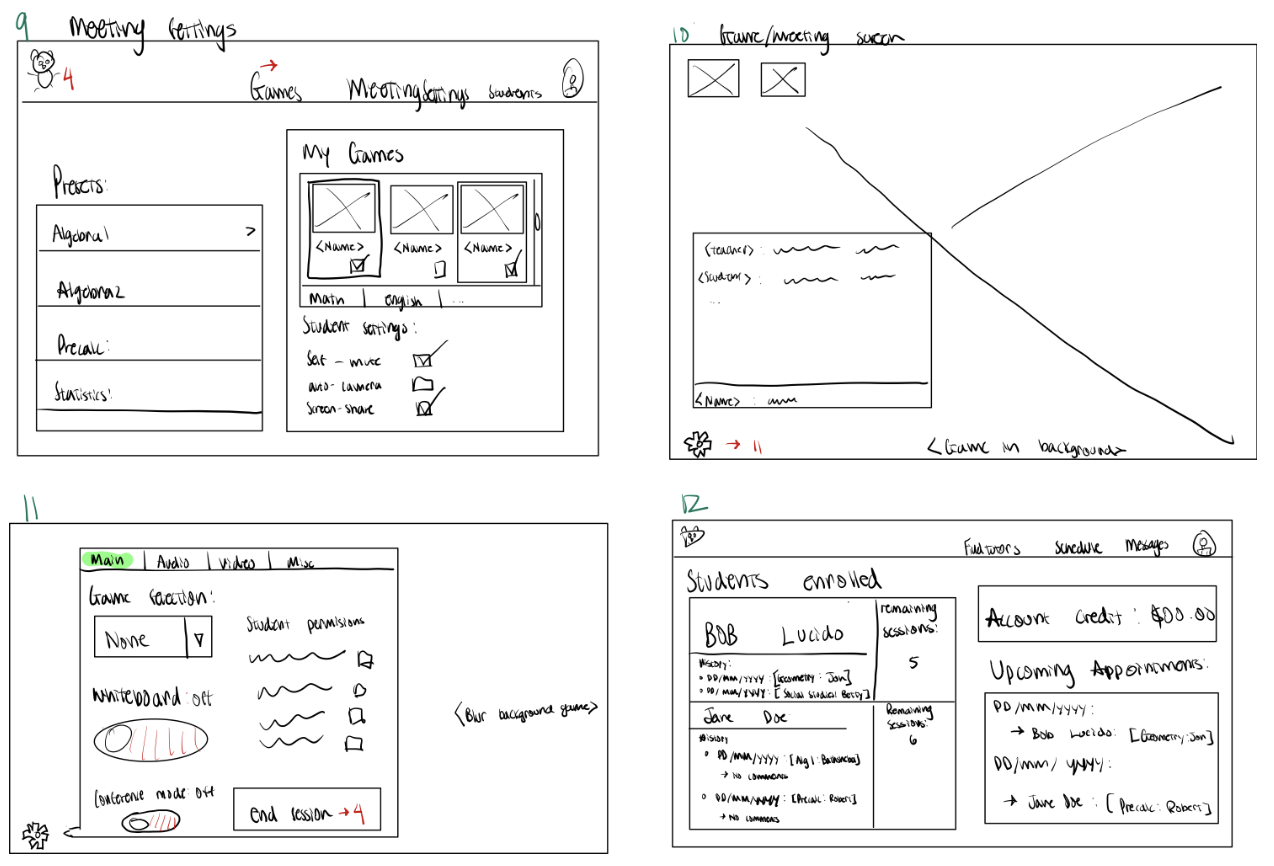 9 Meeting Settings
4
→
Games Meeting Settings Students
Presets:
Algebra 1 >
Algebra 2
Precalc:
Statistics:
My Games
<Name> <Name> <Name>
Math english ...
Student settings:
Self - mute
auto - camera
Screen - share
10 Game/meeting screen
<teacher> :
<Student> :
...
<Name> :
→ 11
<Game in background>
11
Main Audio Video Misc
Game Selection:
None
Student permisions
Whiteboard: off
Conference mode: off
end session → 4
<Blur background game>
12
Find tutors Schedule Messages
Students enrolled
BOB Lucido
remaining sessions:
5
History:
DD/MM/YYYY : [Geometry : Jon]
DD/MM/YYYY : [Social Studies: Betty]
Jane Doe
Remaining sessions:
6
History
DD/MM/YYYY : [Alg 1 : ]
→ No comments
DD/MM/YYYY : [Precalc : Robert]
→ No comments
Account Credit : $00.00
Upcoming Appointments:
DD/MM/YYYY:
→ Bob Lucido: [Geometry: Jon]
DD/MM/YYYY:
→ Jane Doe : [Precalc: Robert]